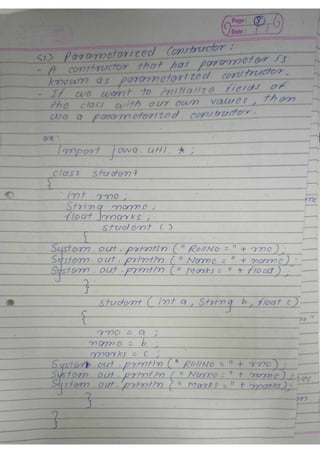 Page:
Date:
(2) Parameterized Constructor:
- A constructor that has parameter is
known as parameterized constructor.
- If we want to initialize fields of
the class with our own values, then
use a parameterized constructor.
ex:
import java.util.*;
class student
{
int rno;
String name;
float marks;
student ()
{
System.out.println("RollNO = " + rno);
System.out.println("Name = " + name);
System.out.println("Marks = " +
}
student (int a, String b, float c)
{
rno = a;
name = b;
marks = c;
System.out.println("RollNO = " + rno);
System.out.println("Name = " + name);
System.out.println("marks = " + marks);
}
}